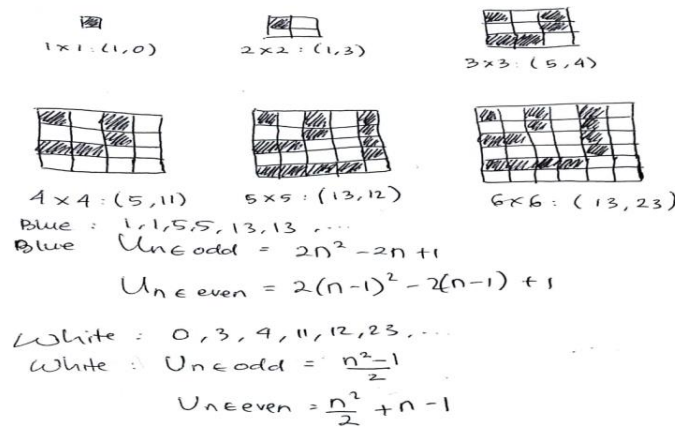 1×1 : (1,0)
2×2 : (1,3)
3×3 : (5,4)
4×4 : (5,11)
5×5 : (13,12)
6×6 : (13,23)
Blue : 1,1,5,5,13,13,...
Blue Un∈odd = 2n²-2n+1
Un∈even = 2(n-1)²-2(n-1)+1
White : 0,3,4,11,12,23,...
White : Un∈odd = n²-1/2
Un∈even = n²/2+n-1